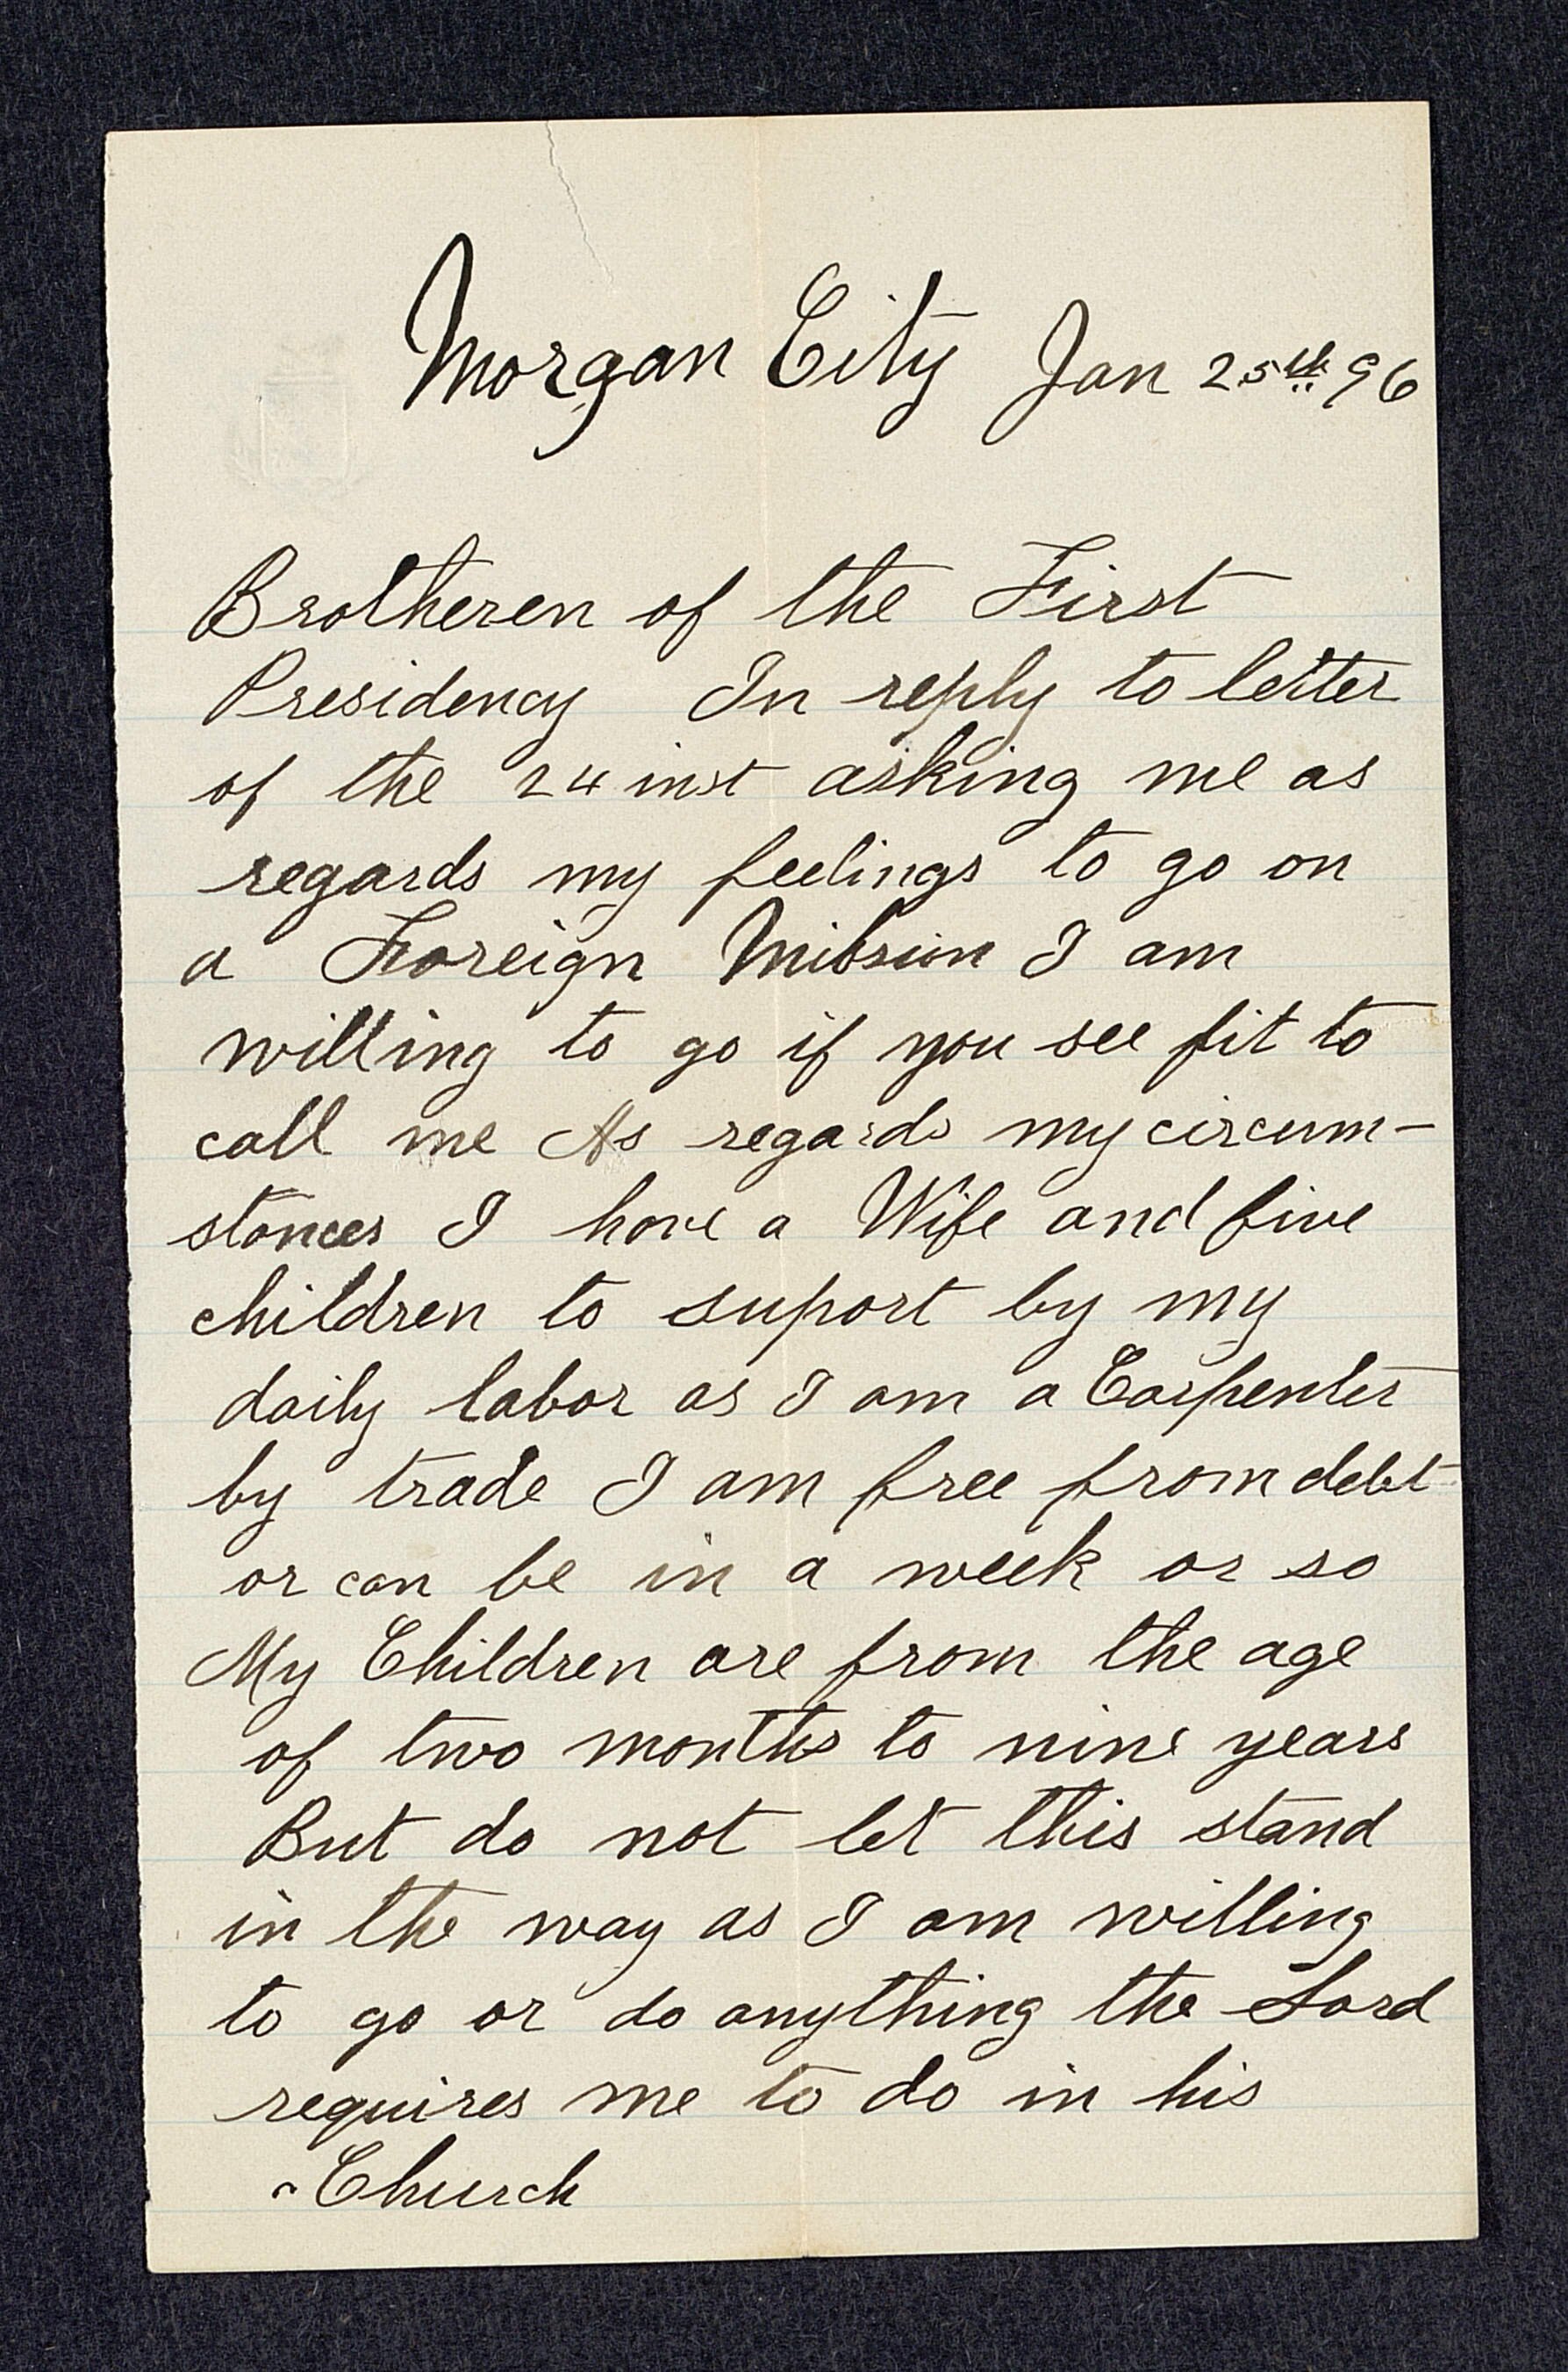 Morgan City Jan 25th 96
Brotheren of the First
Presidency In reply to letter
of the 24 inst asking me as
regards my feelings to go on
a Foreign Mission I am
willing to go if you see fit to
call me As regards my circum-
stances I have a Wife and five
children to suport by my
daily labor as I am a Carpenter
by trade I am free from debt
or can be in a week or so
My Children are from the age
of two months to nine years
But do not let this stand
in the way as I am willing
to go or do anything the Lord
requires me to do in his
Church